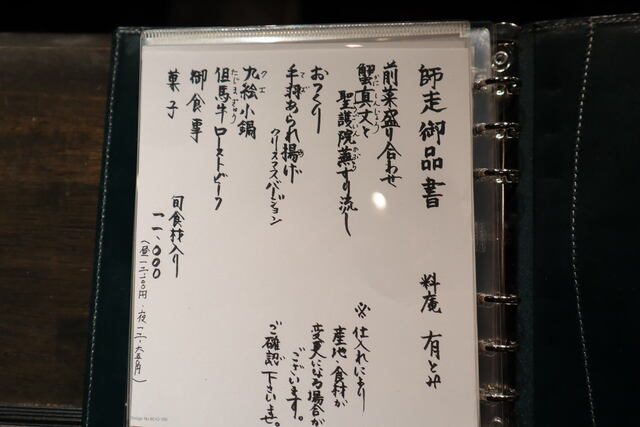 師走御品書
料庵 有とみ
前菜盛り合わせ
蟹真丈と
聖護院蕪すり流し
おつくり
手羽あられ揚げ
クリスマスバージョン
九絵小鍋
クエ
但馬牛ローストビーフ
たじまぎゅう
御食事
菓子
旬食材入り
一一、000
※ 仕入れにより
産地・食材が
変更になる場合が
ございます。
ご確認
下さいませ。